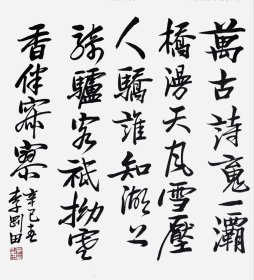 萬古詩魂一灞
橋漫天風雪壓
人驕誰知湖上
騎驢客祇拗
香伴寂寥
辛巳春
李剛田